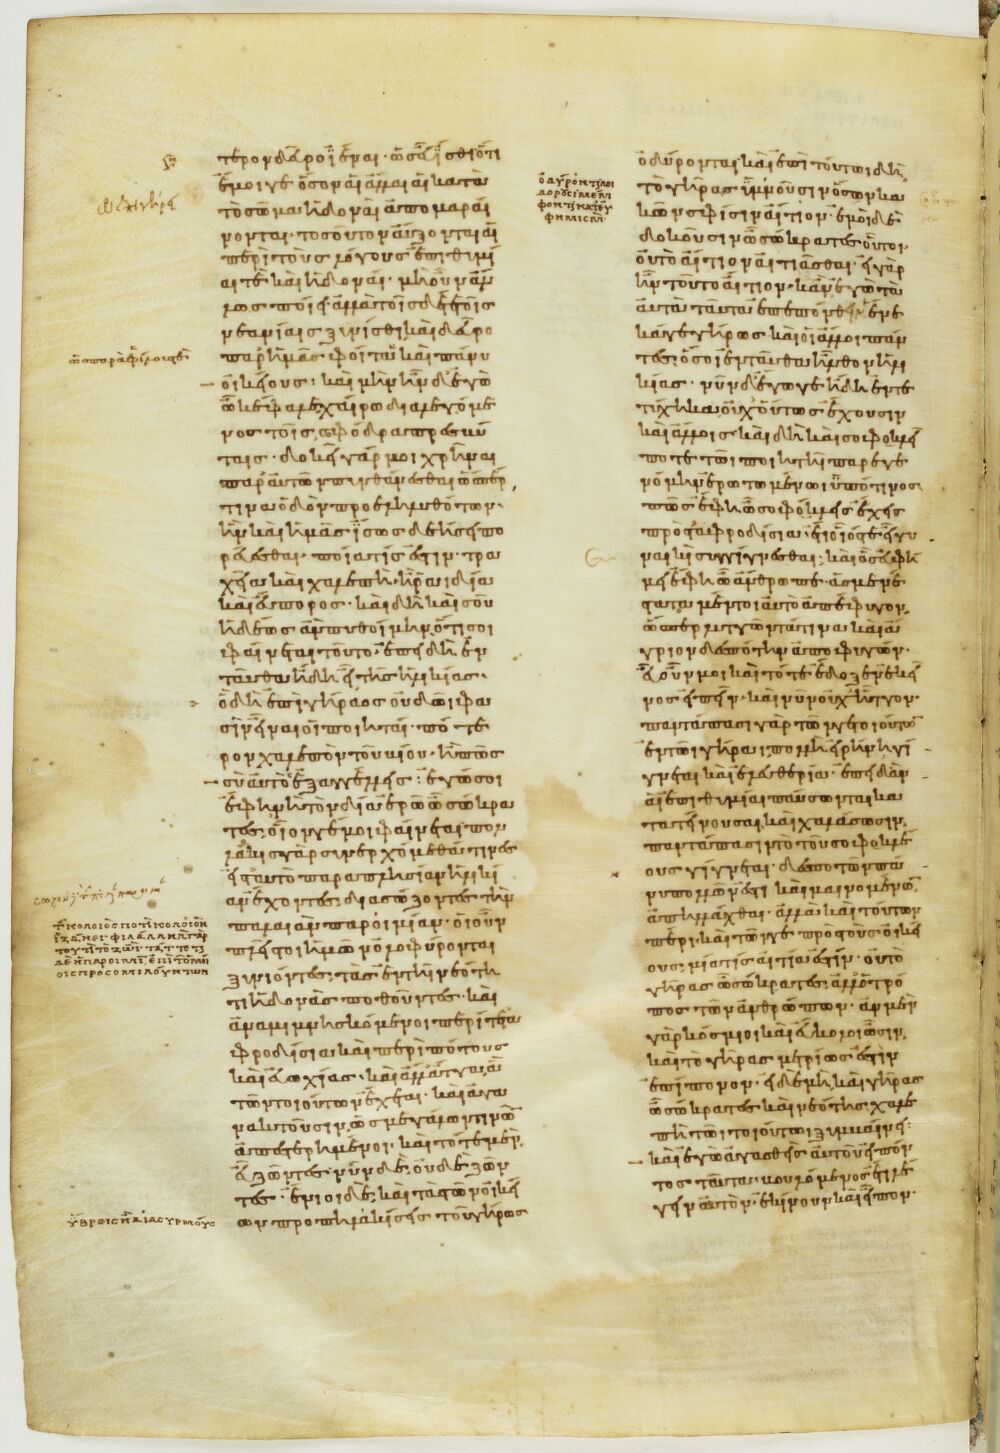 τερον δεῦρο ἰέναι· ὡς εὖ ἴσθι ὅτι
ἔμοιγε ὅσον αἱ ἄλλαι αἱ κατὰ
τὸ σῶμα ἡδοναὶ ἀπομαραί
νονται· τοσοῦτον αὔξονται αἱ
περὶ τοὺς λόγους ἐπιθυμί
αι τὲ καὶ ἡδοναί· μὴ οὖν ἄλ
λως ποίει· ἀλλὰ τοῖσδέ τε τοῖς
νεανίαις ξύνισθι καὶ δεῦρο
παρ' ἡμᾶς φοίτα καὶ πάνυ
οἰκείους: καὶ μὴν ἦν δ' ἐγὼ
ὦ κέφαλε, χαίρω διαλεγόμε
νος τοῖς σφόδρα πρεσβύ
ταις· δοκεῖ γάρ μοι χρῆναι
παρ' αὐτῶν πυνθάνεσθαι ὥσπερ
τινα ὁδὸν προεληλυθότων·
ἣν καὶ ἡμᾶς ἴσως δεήσει πο
ρεύεσθαι· ποία τίς ἐστιν· τρα
χεῖα καὶ χαλεπὴ, ἢ ῥαιδία
καὶ εὔπορος· καὶ δὴ καὶ σοῦ
ἡδέως ἂν πυθοίμην, ὅτι σοι
φαίνεται τοῦτο· ἐπειδὴ ἐν
ταῦθα ἤδη εἶ τῆς ἡλικίας·
ὃ δὴ ἐπὶ γήραος οὐδῶι φα
σὶν εἶναι οἱ ποιηταί· πότε
ρον χαλεπὸν τοῦ βίου· ἢ πῶς
σὺ αὐτὸ ἐξαγγέλλεις: ἐγώ σοι
ἔφη νὴ τὸν δία ἐρῶ ὦ σώκρα
τες, οἷόν γέ μοι φαίνεται· πολ
λάκις γὰρ συνερχόμεθά τινες
εἰς ταυτὸ παραπλησίαν ἡλικί
αν ἔχοντες· διασώζοντες τὴν
παλαιὰν παροιμίαν· οἱ οὖν
πλεῖστοι ἡμῶν ὀλοφύρονται
ξυνιόντες· τὰς ἐν τῆι νεότη
τι ἡδονὰς ποθοῦντες· καὶ
ἀναμιμνησκόμενοι περί τε τἀ
φροδίσια καὶ περὶ πότους
καὶ εὐωχίας· καὶ ἄλλ' ἄττα, ἃ
τῶν τοιούτων ἔχεται· καὶ ἀγα
νακτοῦσιν, ὡς μεγάλων τινῶν
ἀπεστερημένοι· καὶ τότε μὲν,
εὖ ζῶντες· νῦν δὲ, οὐδὲ ζῶν
τες· ἔνιοι δὲ, καὶ τὰς τῶν οἰκεί
ων προπηλακίσεις τοῦ γήρως
ὥσπερ παρὰ φίλους τε
ὕβρεις ἢ διασυρμούς
ὀδύρονται· καὶ ἐπὶ τούτωι δὴ,
τὸ γῆρας ὑμνοῦσιν ὅσων κα
κῶν σφίσιν αἴτιον· ἐμοὶ δὲ
δοκοῦσιν ὦ σώκρατες οὗτοι·
οὐ τὸ αἴτιον αἰτιᾶσθαι· εἰ γὰρ
ἦν τοῦτο αἴτιον, κἂν ἐγὼ τὰ
αὐτὰ ταῦτα ἐπεπόνθη ἕνε
κά γε γήρως· καὶ οἱ ἄλλοι πάν
τες, ὅσοι ἐνταῦθα ἦλθον ἡλι
κίας· νῦν δ' ἔγωγε ἤδη ἐντε
τύχηκα οὐχ οὕτως ἔχουσιν
καὶ ἄλλοις· καὶ δὴ καὶ σοφοκλεῖ
ποτε τῶι ποιητῆι παρεγε
νόμην ἐρωτωμένωι ὑπό τινος·
πῶς ἔφη ὦ σοφόκλεις ἔχεις
πρὸς τἀφροδίσια· ἔτι οἷός τε εἶ γυ
ναικὶ συγγίγνεσθαι: καὶ ὃς, εὐφή
μει ἔφη ὦ ἄνθρωπε· ἀσμενέ
στατα μέντοι αὐτὸ ἀπέφυγον,
ὥσπερ λυττῶντά τινα καὶ ἄ
γριον δεσπότην ἀποφυγών·
εὖ οὖν μοι καὶ τότε ἔδοξεν ἐκεῖ
νος εἰπεῖν· καὶ νῦν οὐχ ἧττον·
παντάπασι γὰρ τῶν γε τοιούτων
ἐν τῶι γήραι πολλὴ εἰρήνη γί
γνεται καὶ ἐλευθερία· ἐπειδὰν
αἱ ἐπιθυμίαι παύσωνται κα
τατείνουσαι, καὶ χαλάσωσιν,
παντάπασι τὸ τοῦ σοφοκλέ
ους γίγνεται· δεσποτῶν πά
νυ πολλῶν ἐστι καὶ μαινομένων
ἀπηλλάχθαι· ἀλλὰ καὶ τούτων
πέρι, καὶ τῶν γε πρὸς τοὺς οἰκεί
ους, μία τίς αἰτία ἐστίν· οὐ τὸ
γῆρας ὦ σώκρατες, ἀλλ' ὁ τρό
πος τῶν ἀνθρώπων· ἂν μὲν
γὰρ κόσμιοι καὶ εὔκολοι ὦσιν,
καὶ τὸ γῆρας μετρίως ἐστὶν
ἐπίπονον· εἰ δὲ μὴ, καὶ γῆρας
ὦ σώκρατες καὶ νεότης, χαλε
πὴ τῶι τοιούτωι ξυμβαίνει:
καὶ ἐγὼ ἀγασθεὶς αὐτοῦ εἰπόν
τος ταῦτα· βουλόμενος ἔτι λέ
γειν αὐτὸν· ἐκίνουν καὶ εἶπον·